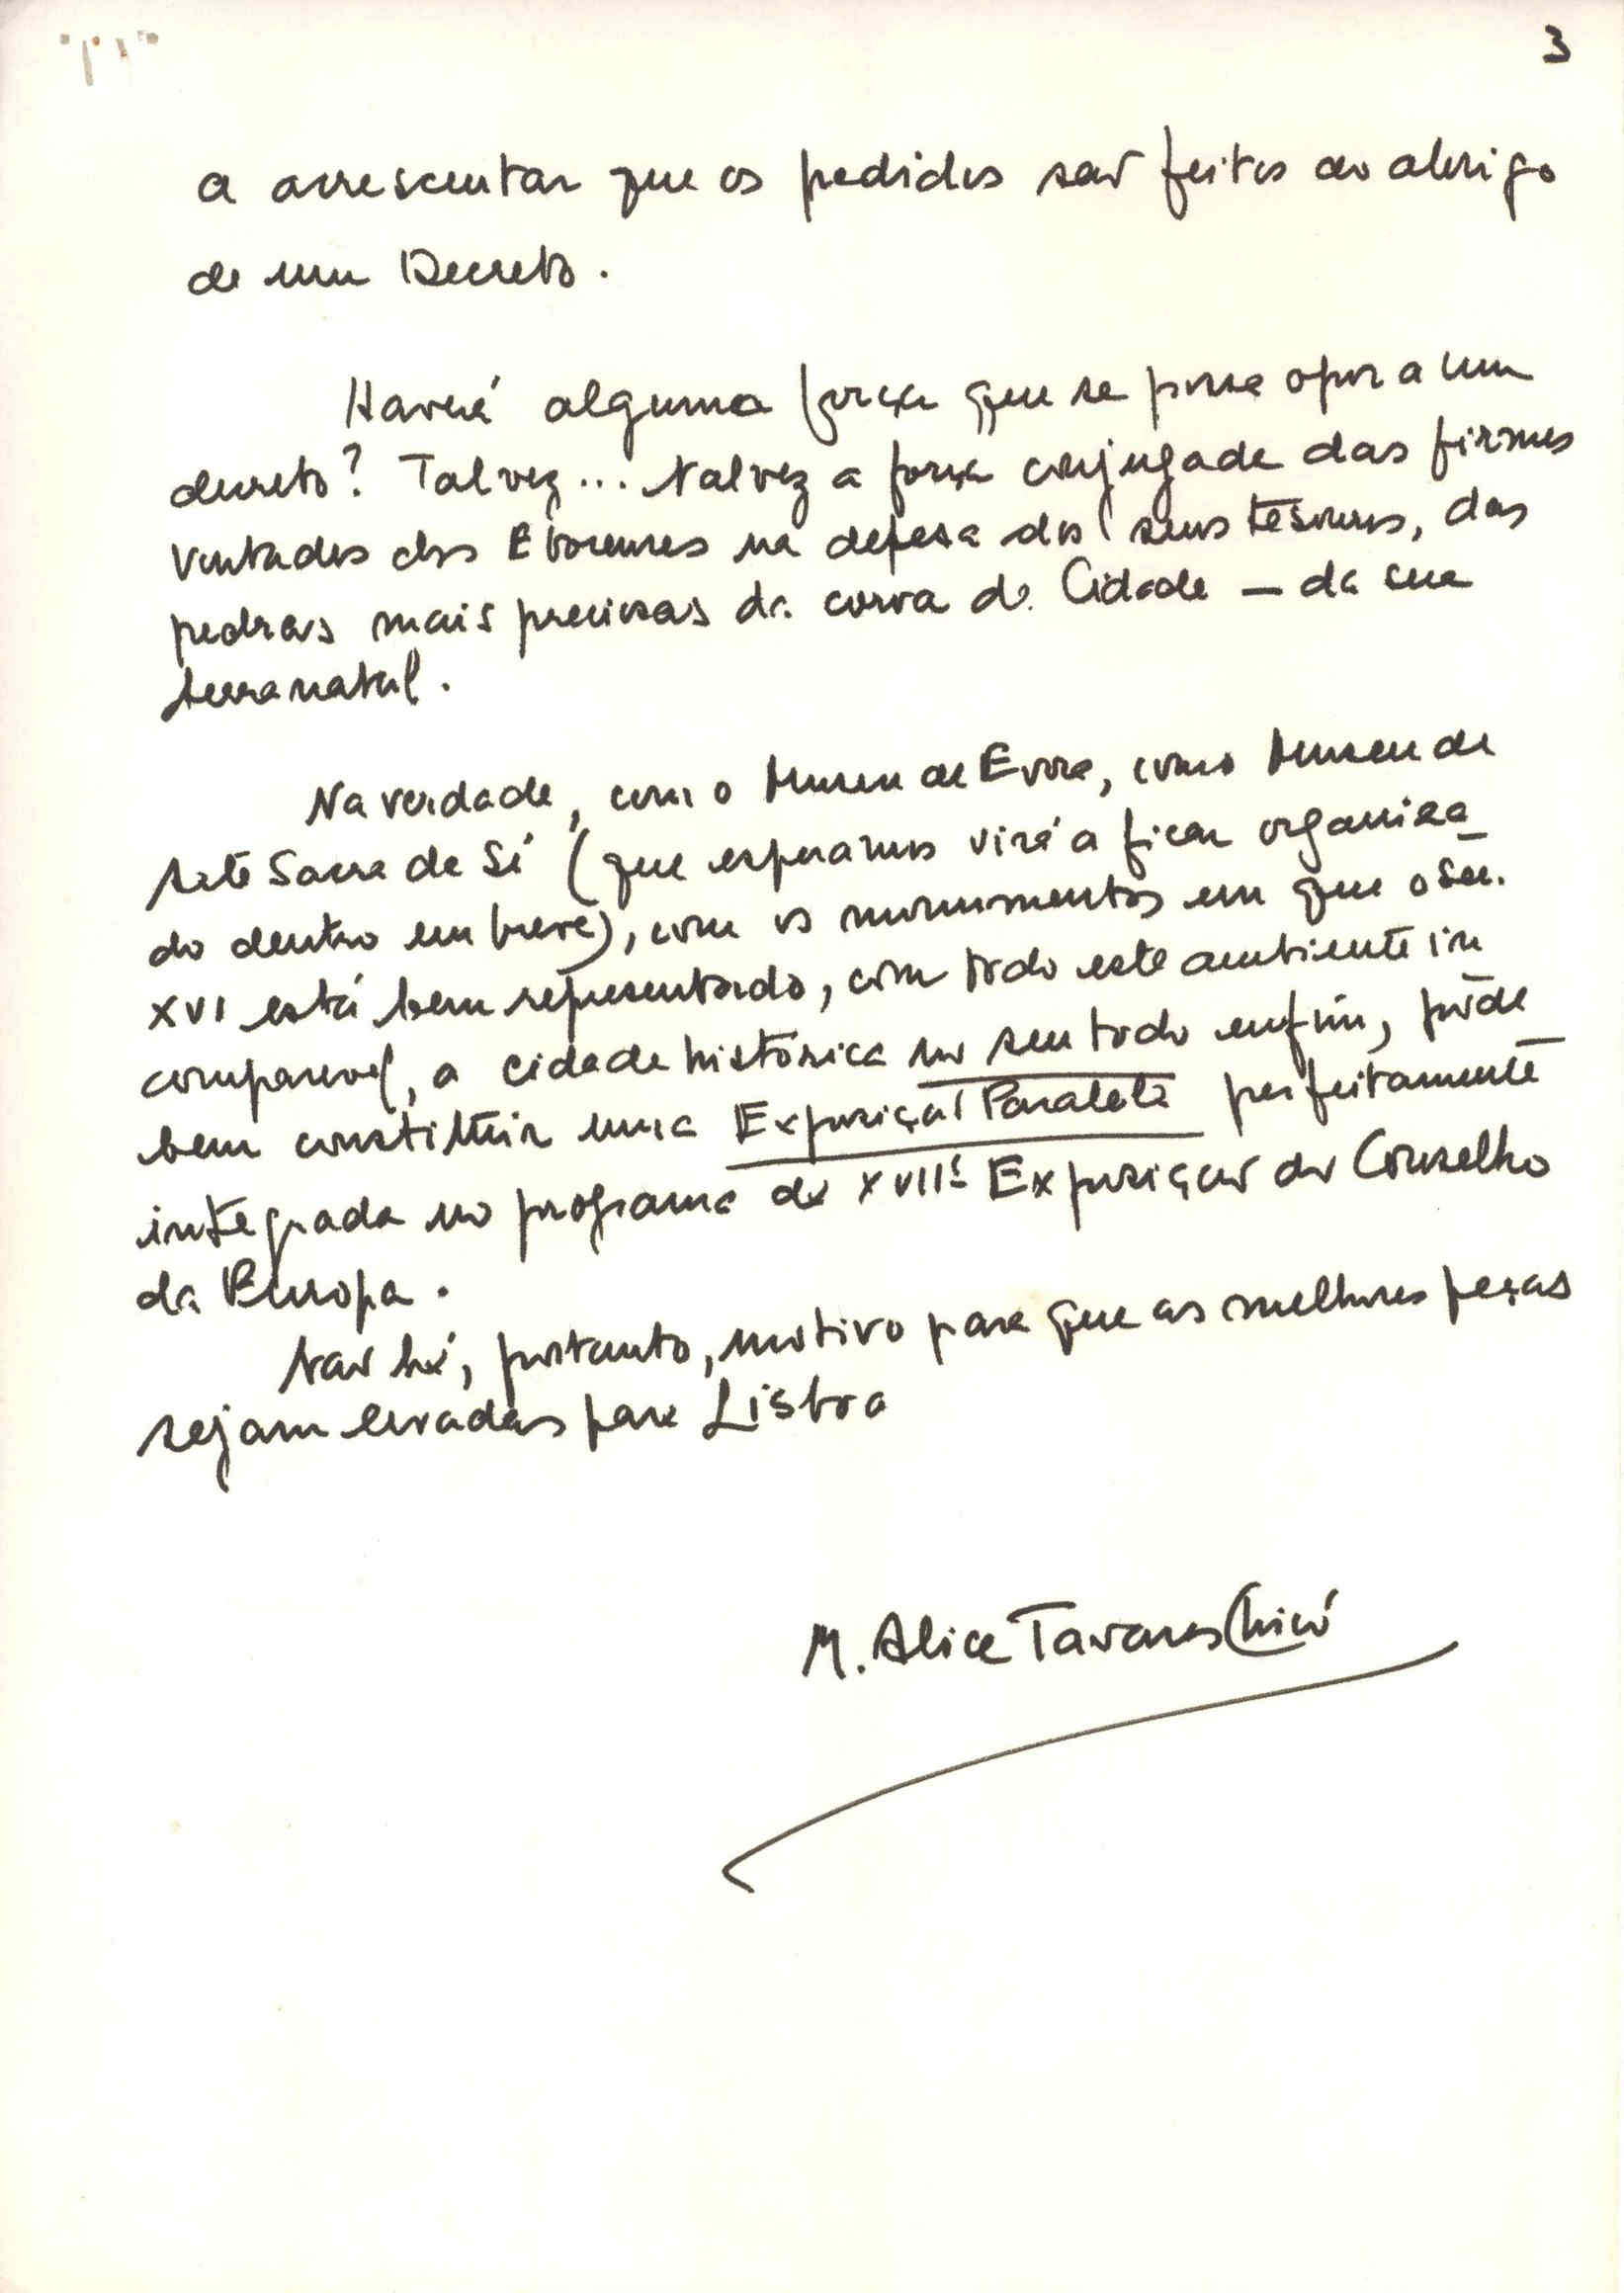 3
a acrescentar que os pedidos são feitos ao abrigo
de um Decreto.
Haverá alguma força que se possa opor a um
decreto? Talvez... Talvez a força conjugada das firmes
vontades dos Eborenses na defesa dos seus tesouros, das
pedras mais preciosas da coroa da Cidade — da sua
terra natal.
Na verdade, com o Museu de Evora, com o Museu de
Arte Sacra da Sé (que esperamos virá a ficar organiza
do dentro em breve), com os monumentos em que o séc.
XVI está bem representado, com todo este ambiente in
comparavel, a cidade histórica no seu todo enfim, pòde
bem constituir uma Exposição Paralela perfeitamente
integrada no programa da XVIIª Exposição do Conselho
da Europa.
Não há, portanto, motivo para que as melhores peças
sejam levadas para Lisboa
M. Alice Tavares Chicó